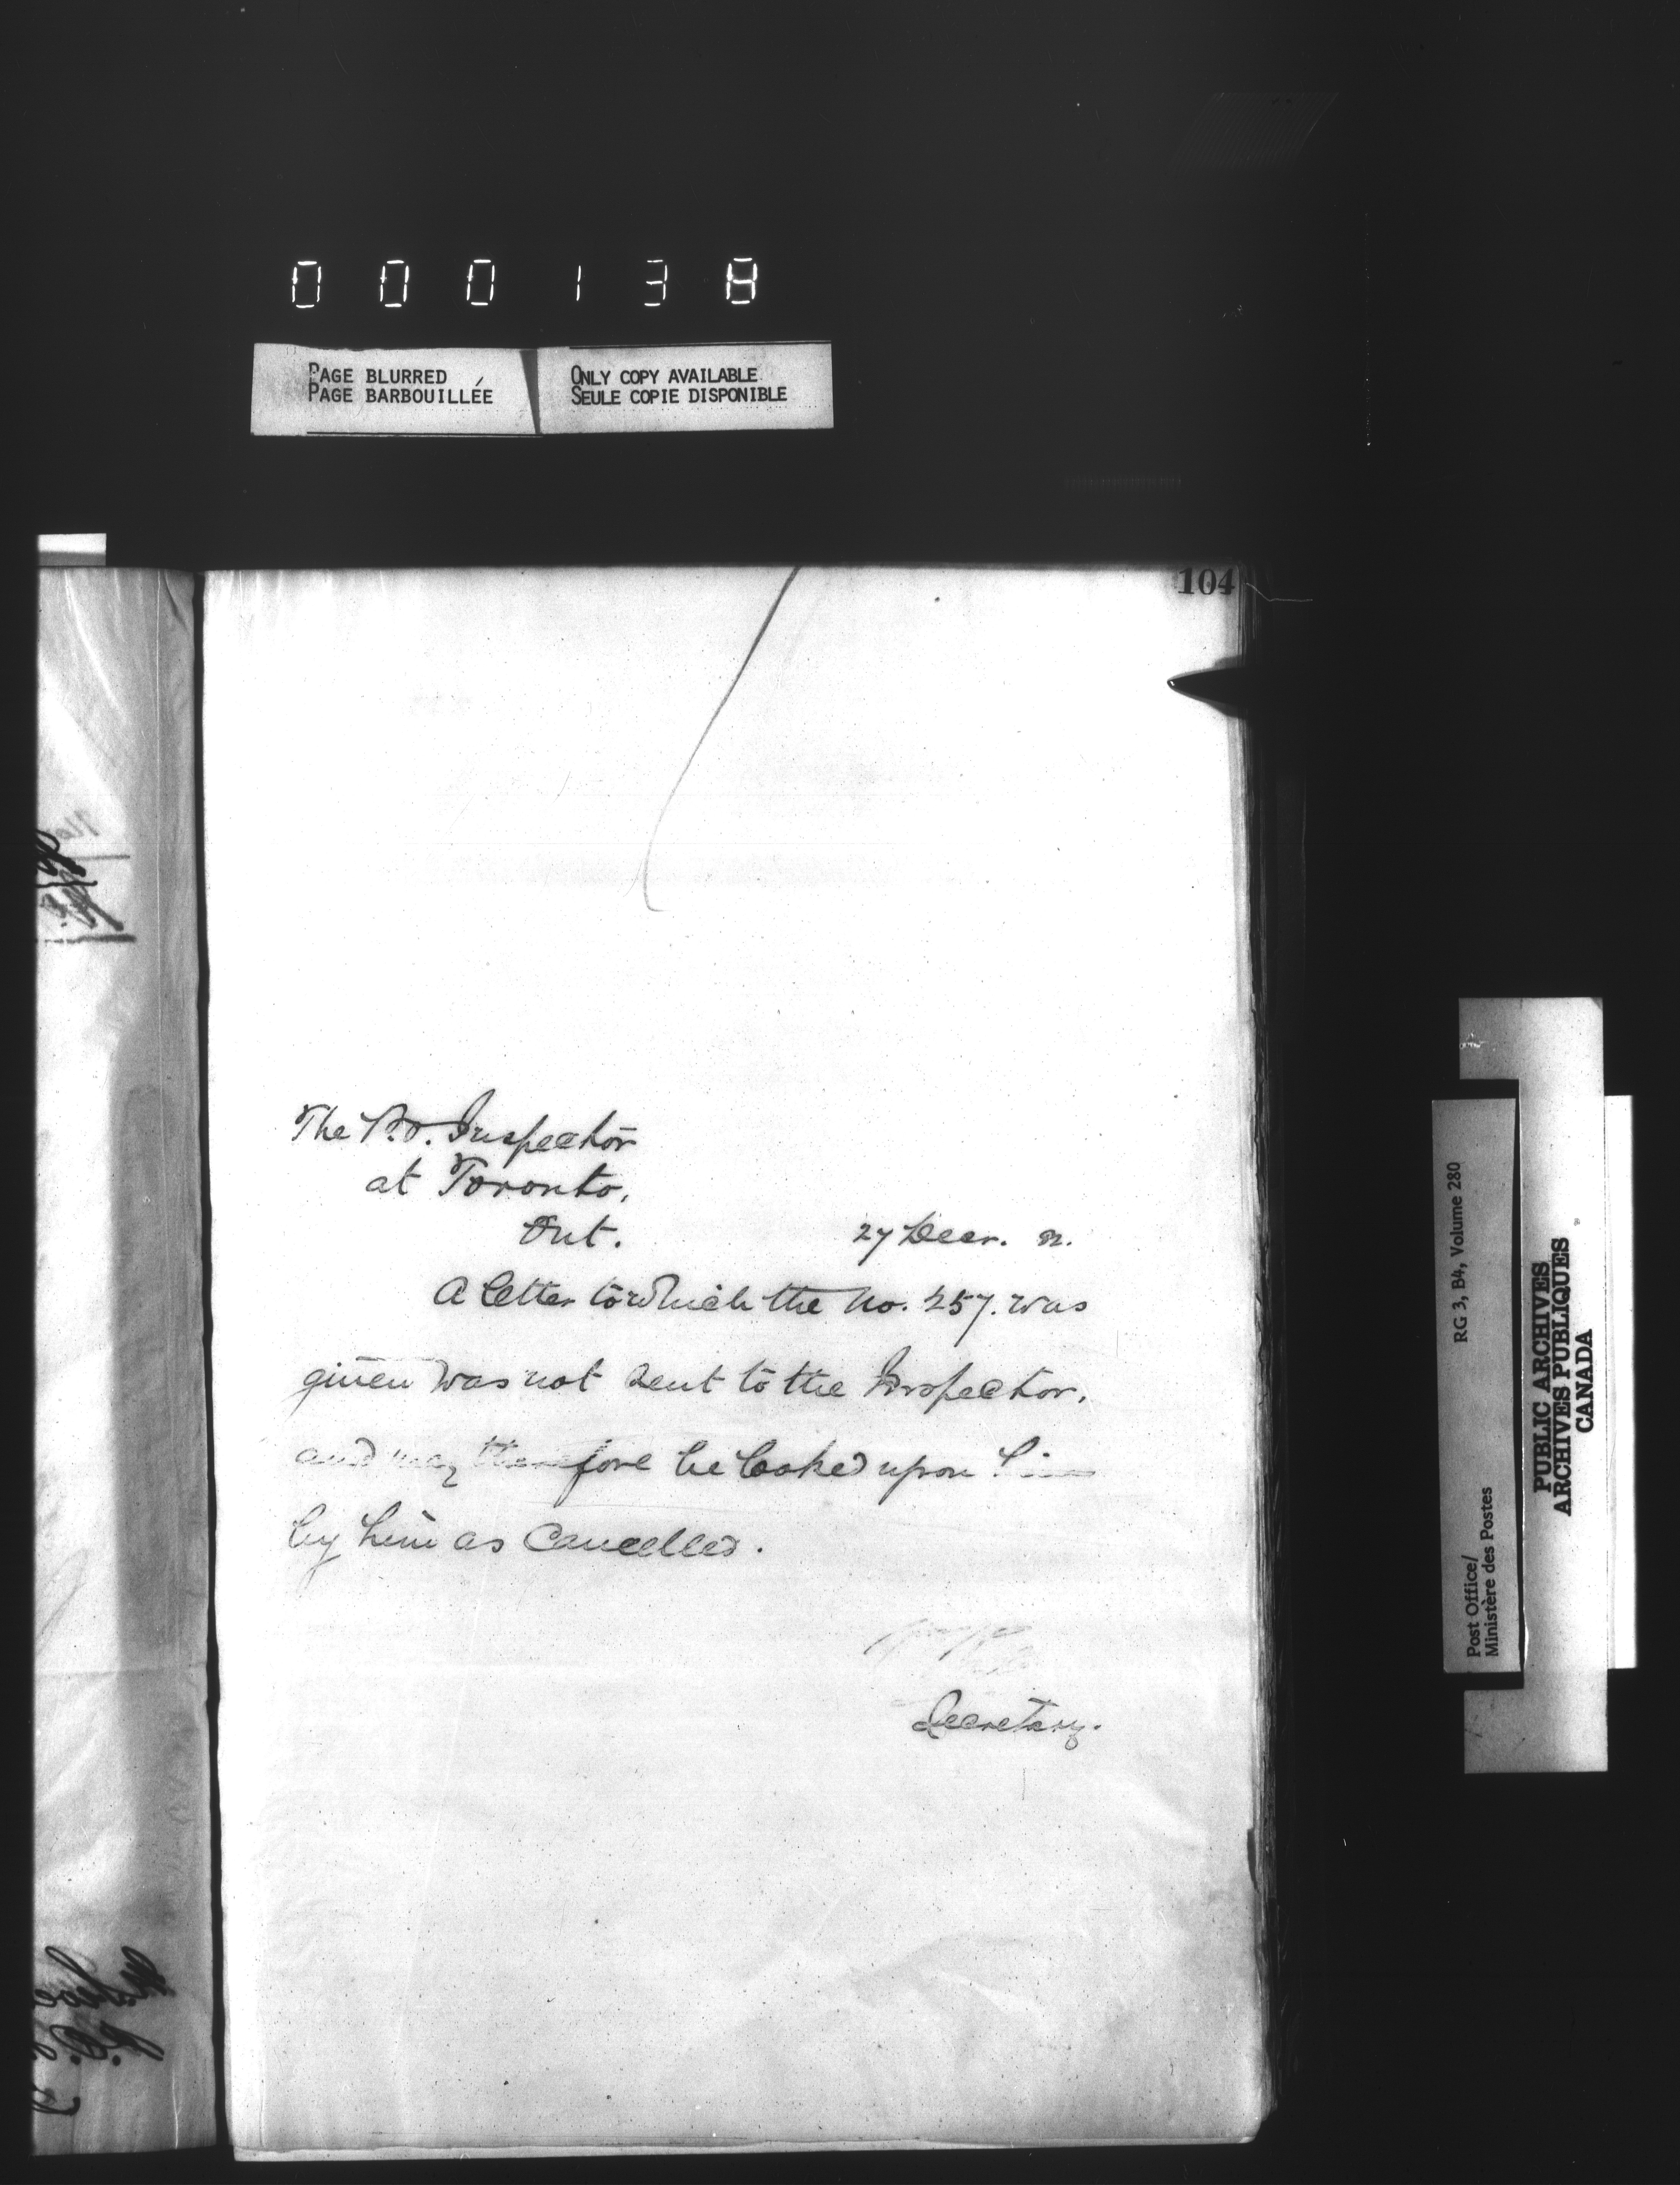 000138
PAGE BLURRED
PAGE BARBOUILLÉE
ONLY COPY AVAILABLE
SEULE COPIE DISPONIBLE
104
The P.O. Inspector
at Toronto,
Ont.
27 Decr. 82.
A letter to which the No. 257. was
given was not sent to the Inspector,
and may therefore be looked upon
by him as Cancelled.
Secretary.
RG 3, B4, Volume 280
Post Office/
Ministère des Postes
PUBLIC ARCHIVES
ARCHIVES PUBLIQUES
CANADA